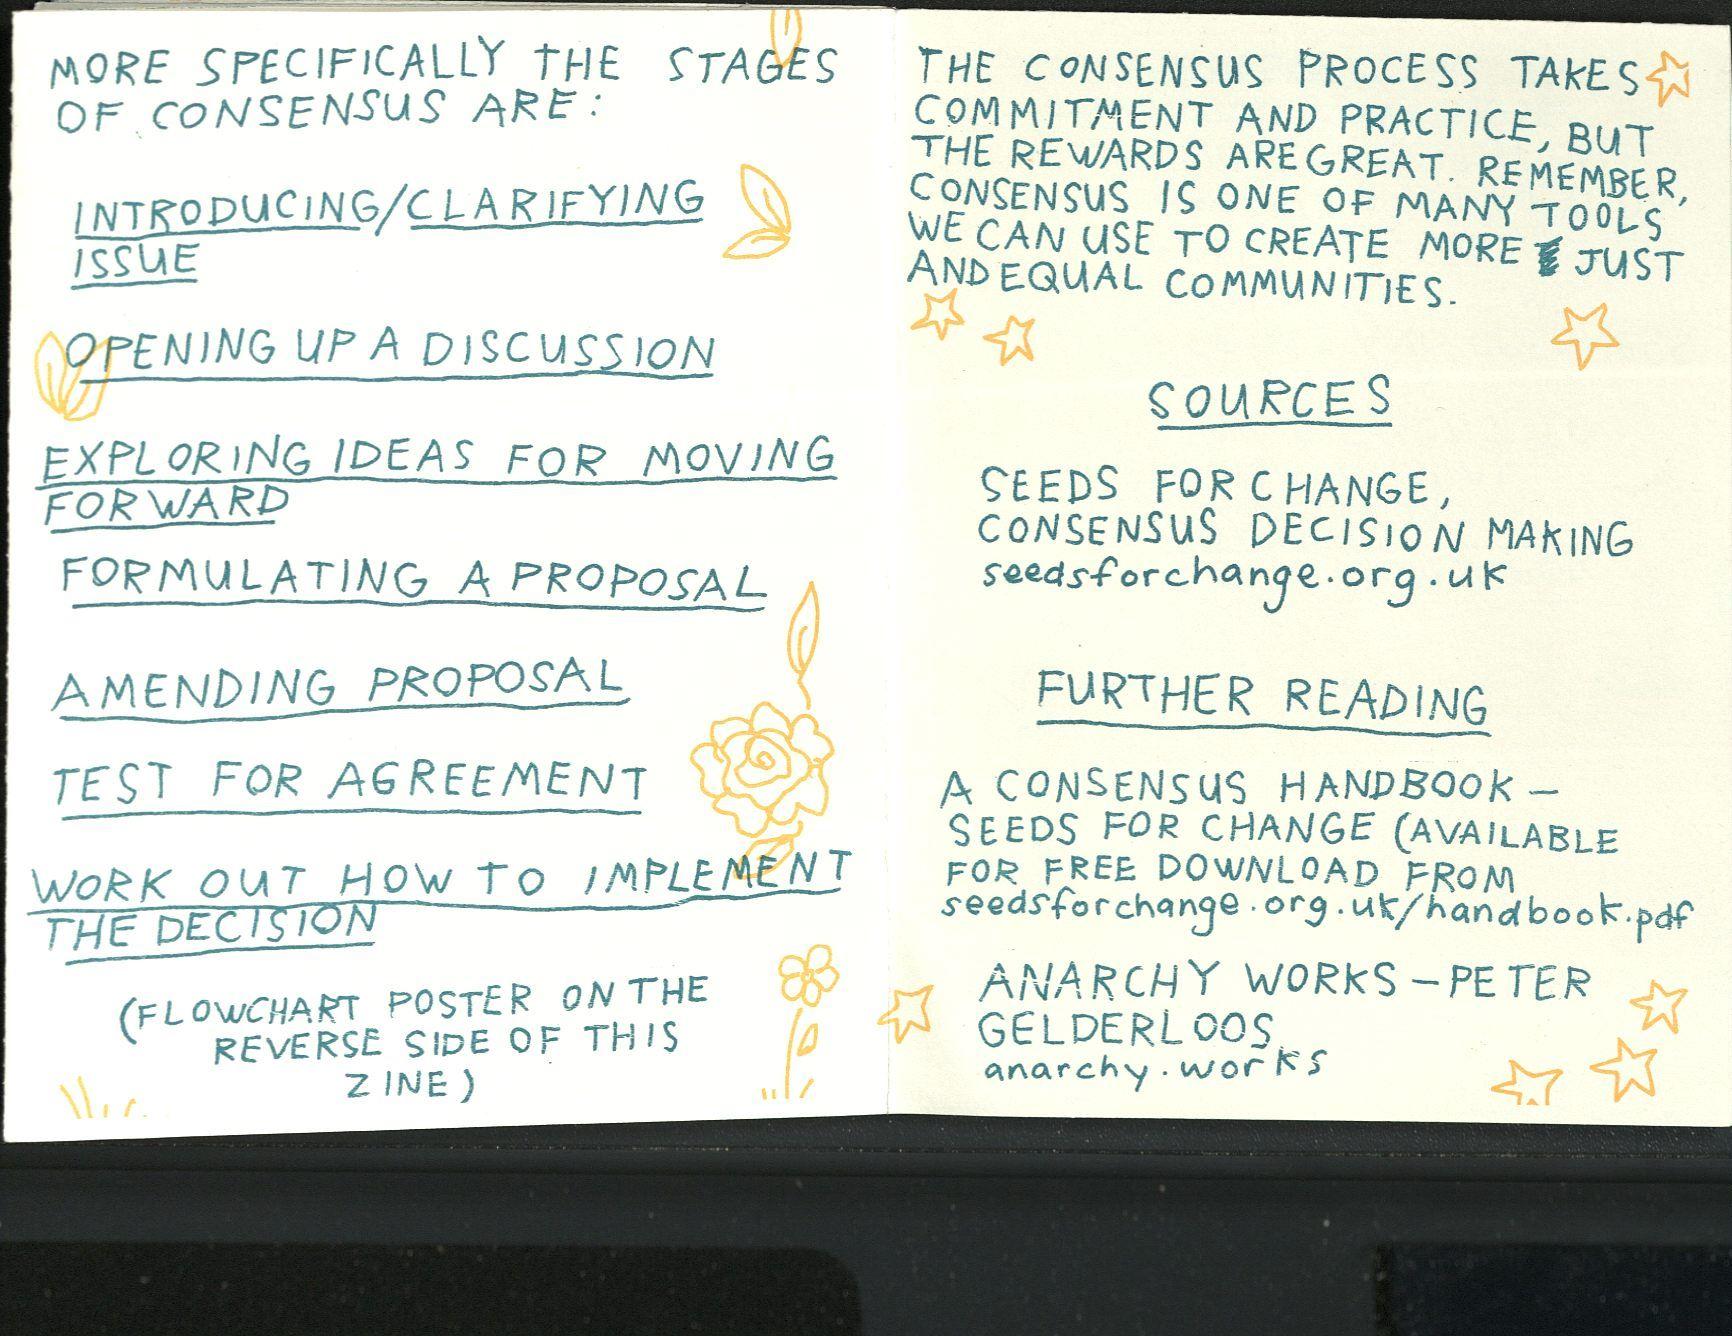 MORE SPECIFICALLY THE STAGES
OF CONSENSUS ARE:
INTRODUCING/CLARIFYING
ISSUE
OPENING UP A DISCUSSION
EXPLORING IDEAS FOR MOVING
FORWARD
FORMULATING A PROPOSAL
AMENDING PROPOSAL
TEST FOR AGREEMENT
WORK OUT HOW TO IMPLEMENT
THE DECISION
(FLOWCHART POSTER ON THE
REVERSE SIDE OF THIS
ZINE)
THE CONSENSUS PROCESS TAKES
COMMITMENT AND PRACTICE, BUT
THE REWARDS ARE GREAT. REMEMBER,
CONSENSUS IS ONE OF MANY TOOLS
WE CAN USE TO CREATE MORE JUST
AND EQUAL COMMUNITIES.
SOURCES
SEEDS FOR CHANGE,
CONSENSUS DECISION MAKING
seedsforchange.org.uk
FURTHER READING
A CONSENSUS HANDBOOK –
SEEDS FOR CHANGE (AVAILABLE
FOR FREE DOWNLOAD FROM
seedsforchange.org.uk/handbook.pdf
ANARCHY WORKS – PETER
GELDERLOOS
anarchy.works